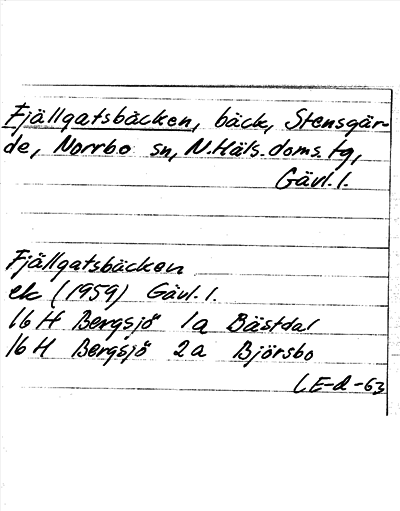 Fjällgatsbäcken, bäck, Stensgär-
de, Norrbo sn, N.Häls. doms. tg,
Gävl. l.
Fjällgatsbäcken
ek (1959) Gävl. l.
16 H Bergsjö 1a Bästdal
16 H Bergsjö 2a Björsbo
LE-d -63